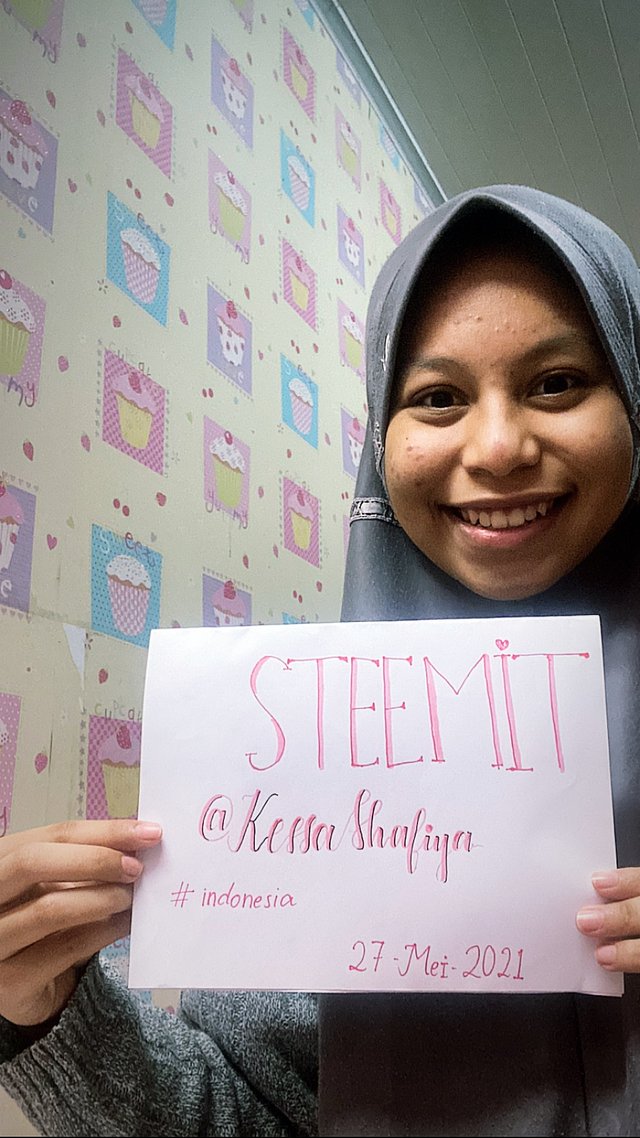 STEEMiT
@KessaShafiya
# indonesia
27-Mei-2021